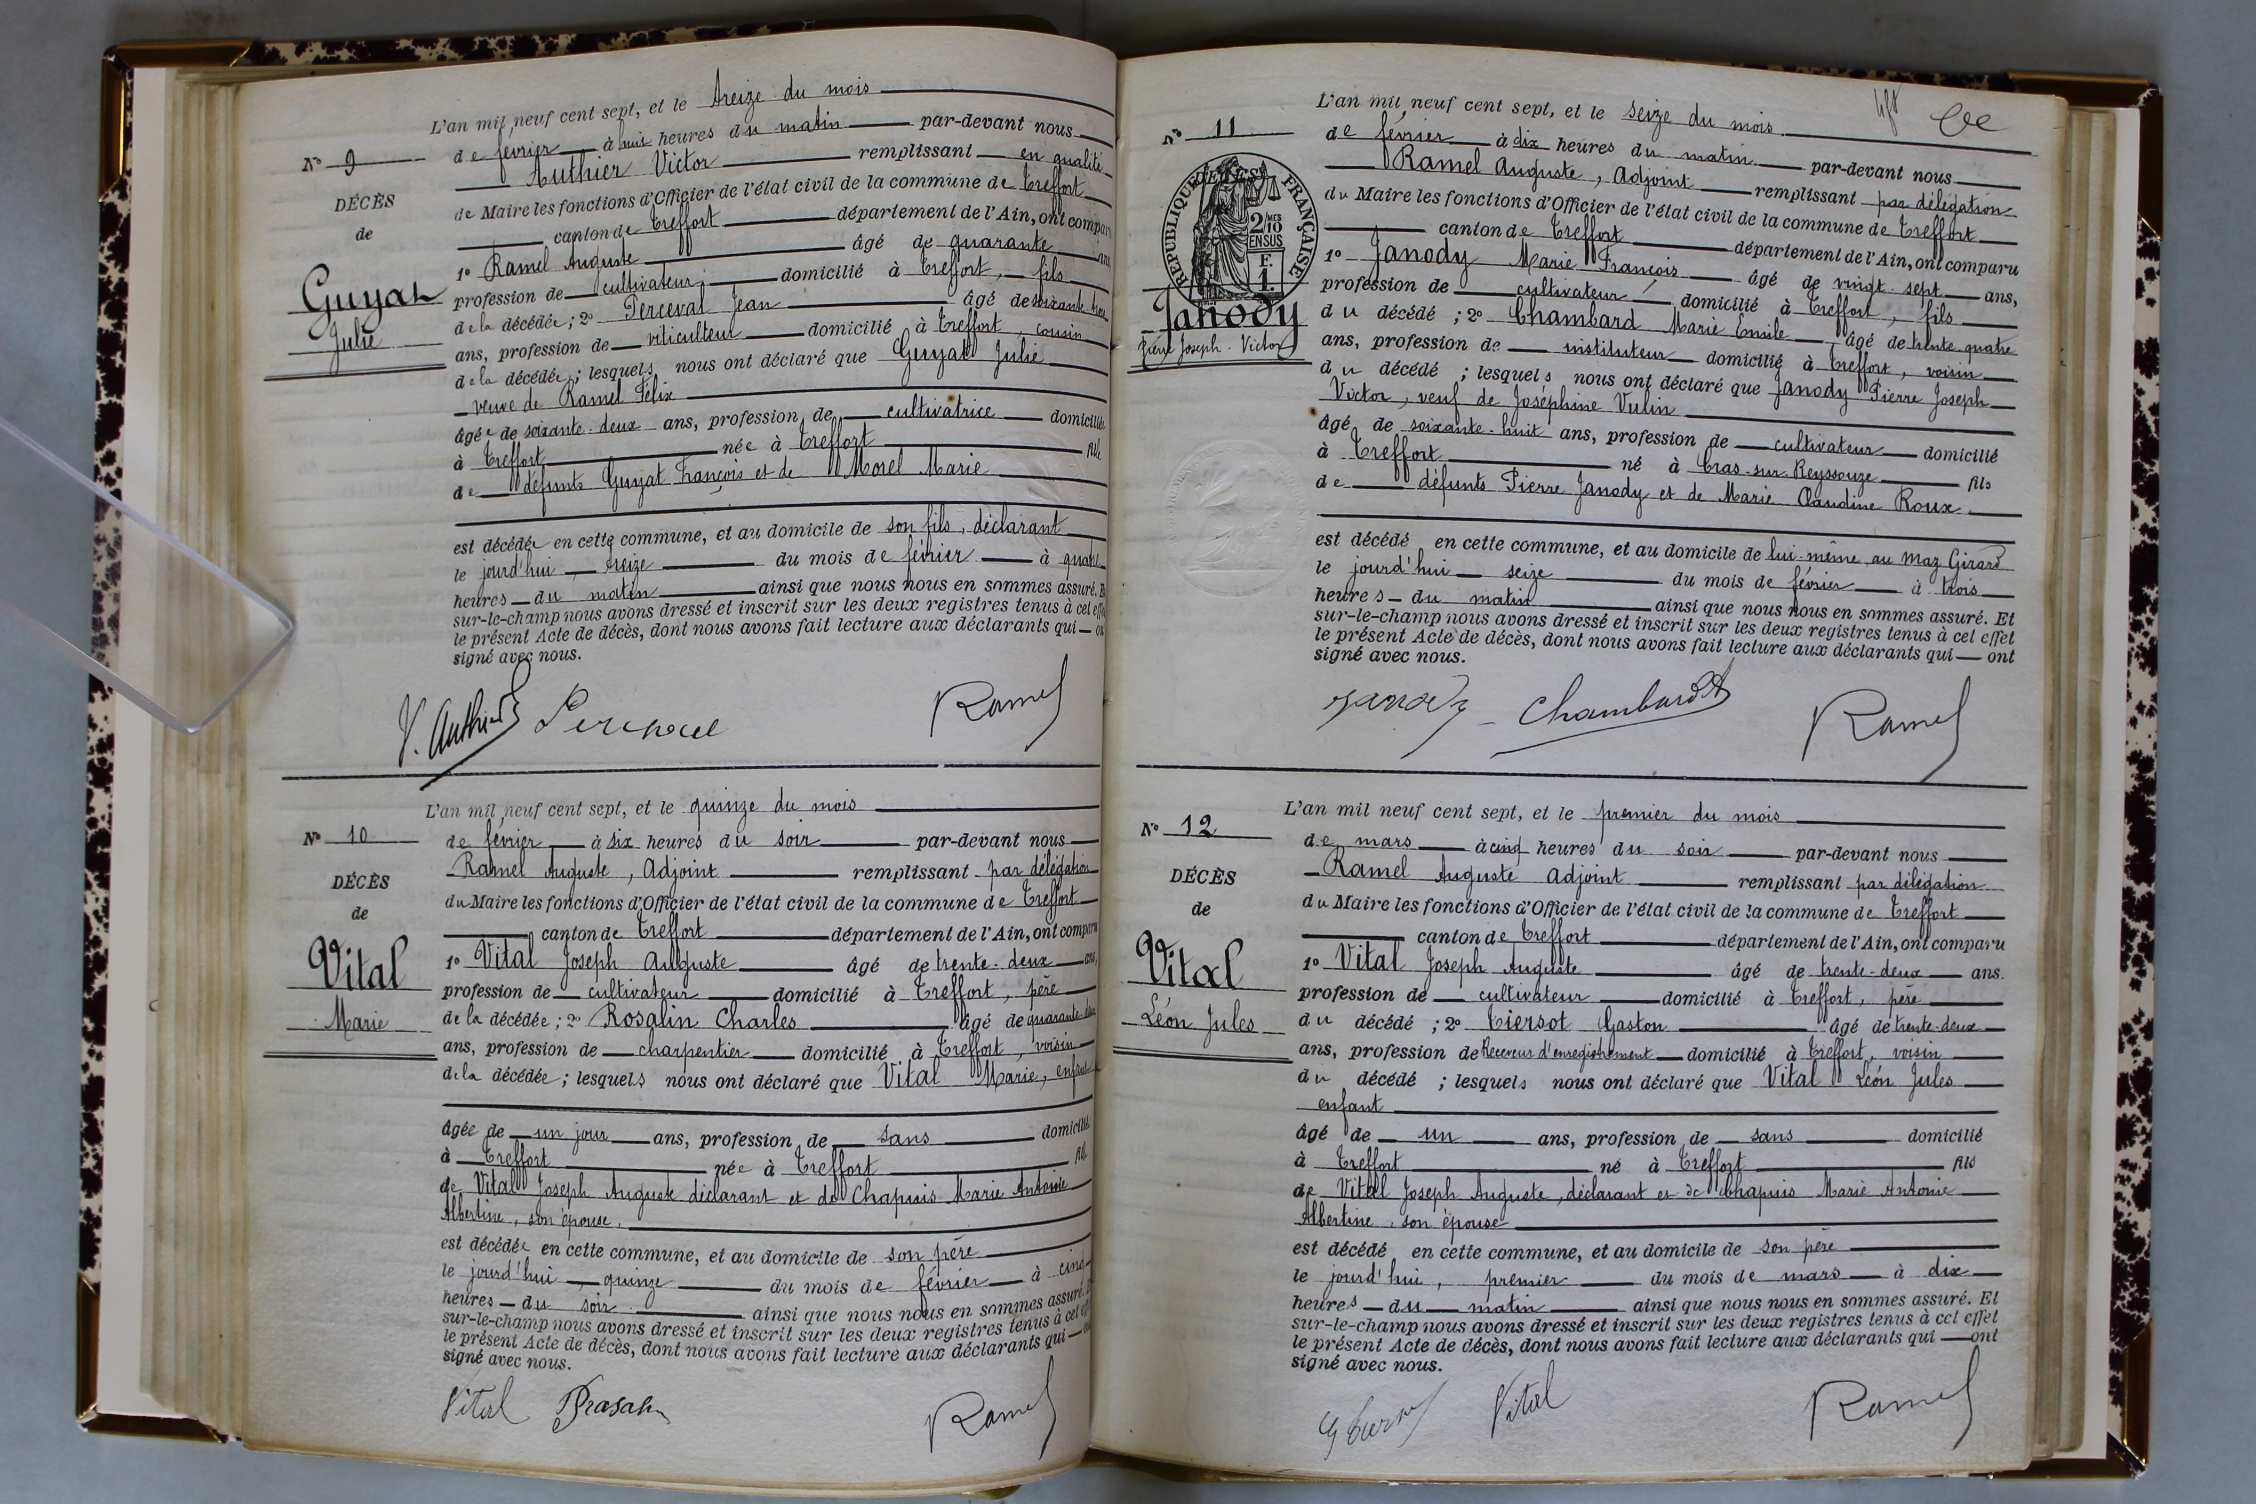 L'an mil neuf cent sept, et le treize du mois
N° 9
de février à huit heures du matin par-devant nous
Authier Victor remplissant en qualité
DÉCÈS
de
de Maire les fonctions d'Officier de l'état civil de la commune de Treffort
canton de Treffort département de l'Ain, ont comparu
1° Ramel Auguste âgé de quarante ans,
Guyat
Julie
profession de cultivateur, domicilié à Treffort, fils
de la décédée; 2° Perceval Jean âgé de soixante-trois
ans, profession de viticulteur domicilié à Treffort, cousin
de la décédée; lesquels nous ont déclaré que Guyat Julie
veuve de Ramel Félix
âgée de soixante-deux ans, profession de cultivatrice domiciliée
à Treffort née à Treffort fille
de défunts Guyat François et de Morel Marie
est décédée en cette commune, et au domicile de son fils, déclarant
le jourd'hui, treize du mois de février à quatre
heures du matin ainsi que nous nous en sommes assuré. Et
sur-le-champ nous avons dressé et inscrit sur les deux registres tenus à cet effet
le présent Acte de décès, dont nous avons fait lecture aux déclarants qui ont
signé avec nous.
V. Authier Perceval Ramel
L'an mil neuf cent sept, et le quinze du mois
N° 10
de février à six heures du soir par-devant nous
Ramel Auguste, Adjoint remplissant par délégation
DÉCÈS
de
du Maire les fonctions d'Officier de l'état civil de la commune de Treffort
canton de Treffort département de l'Ain, ont comparu
Vital
Marie
1° Vital Joseph Auguste âgé de trente-deux ans,
profession de cultivateur domicilié à Treffort, père
de la décédée; 2° Rosalin Charles âgé de quarante-deux
ans, profession de charpentier domicilié à Treffort, voisin
de la décédée; lesquels nous ont déclaré que Vital Marie, enfant
âgée de un jour ans, profession de sans domiciliée
à Treffort née à Treffort fille
de Vital Joseph Auguste déclarant et de Chapuis Marie Antonie
Albertine, son épouse,
est décédée en cette commune, et au domicile de son père
le jourd'hui, quinze du mois de février à cinq
heures du soir ainsi que nous nous en sommes assuré. Et
sur-le-champ nous avons dressé et inscrit sur les deux registres tenus à cet effet
le présent Acte de décès, dont nous avons fait lecture aux déclarants qui ont
signé avec nous.
Vital Ramel
L'an mil neuf cent sept, et le seize du mois
N° 11
de février à dix heures du matin par-devant nous
Ramel Auguste, Adjoint remplissant par délégation
RÉPUBLIQUE FRANÇAISE
2/10 EN SUS
F. 1.
du Maire les fonctions d'Officier de l'état civil de la commune de Treffort
canton de Treffort département de l'Ain, ont comparu
1° Janody Marie François âgé de vingt-sept ans,
Janody
Pierre Joseph-Victor
profession de cultivateur, domicilié à Treffort, fils
du décédé; 2° Chambard Marie Emile âgé de trente-quatre
ans, profession de instituteur domicilié à Treffort, voisin
du décédé; lesquels nous ont déclaré que Janody Pierre Joseph
Victor, veuf de Joséphine Vulin
âgé de soixante-huit ans, profession de cultivateur domicilié
à Treffort né à Cras-sur-Reyssouze fils
de défunts Pierre Janody et de Marie Claudine Roux
est décédé en cette commune, et au domicile de lui-même au Maz Girard
le jourd'hui seize du mois de février à trois
heures du matin ainsi que nous nous en sommes assuré. Et
sur-le-champ nous avons dressé et inscrit sur les deux registres tenus à cet effet
le présent Acte de décès, dont nous avons fait lecture aux déclarants qui ont
signé avec nous.
Janody Chambard Ramel
L'an mil neuf cent sept, et le premier du mois
N° 12
de mars à cinq heures du soir par-devant nous
Ramel Auguste Adjoint remplissant par délégation
DÉCÈS
de
du Maire les fonctions d'Officier de l'état civil de la commune de Treffort
canton de Treffort département de l'Ain, ont comparu
Vital
Léon Jules
1° Vital Joseph Auguste âgé de trente-deux ans.
profession de cultivateur domicilié à Treffort, père
du décédé; 2° Tiersot Gaston âgé de trente-deux
ans, profession de Receveur d'enregistrement domicilié à Treffort, voisin
du décédé; lesquels nous ont déclaré que Vital Léon Jules
enfant
âgé de un ans, profession de sans domicilié
à Treffort né à Treffort fils
de Vital Joseph Auguste, déclarant et de Chapuis Marie Antonie
Albertine, son épouse
est décédé en cette commune, et au domicile de son père
le jourd'hui, premier du mois de mars à dix
heures du matin ainsi que nous nous en sommes assuré. Et
sur-le-champ nous avons dressé et inscrit sur les deux registres tenus à cet effet
le présent Acte de décès, dont nous avons fait lecture aux déclarants qui ont
signé avec nous.
Vital Ramel